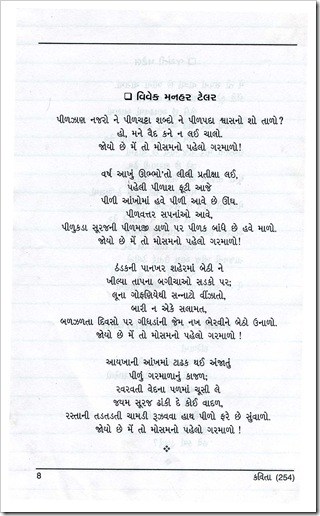 ❑ વિવેક મનહર ટેલર
પીળઝાણ નજરો ને પીળચટ્ટા શબ્દો ને પીળપદા શ્વાસનો શો તાળો?
હો, મને વૈદ કને ન લઈ ચાલો.
જોયો છે મેં તો મોસમનો પહેલો ગરમાળો!
વર્ષ આખું ઊભ્ભો'તો લીલી પ્રતીક્ષા લઈ,
પહેલી પીળાશ ફૂટી આજે
પીળી આંખોમાં હવે પીળી આવે છે ઊંઘ.
પીળવત્તર સપનાંઓ આવે,
પીળુકડા સૂરજની પીળમજી ડાળો પર પીળક બાંધે છે હવે માળો.
જોયો છે મેં તો મોસમનો પહેલો ગરમાળો!
ઠંડકની પાનખર શહેરમાં બેઠી ને
ખીલ્યા તાપના બગીચાઓ સડકો પર;
લૂના ગોફણિયેથી સન્નાટો વીંઝાતો,
બારી ન એકે સલામત,
બળઝળતા દિવસો પર ગીધડાંની જેમ નખ ભેરવીને બેઠો ઉનાળો.
જોયો છે મેં તો મોસમનો પહેલો ગરમાળો !
આયખાની આંખમાં ટાઢક થઈ અંજાતું
પીળું ગરમાળાનું કાજળ;
રવરવતી વેદના પળમાં ચૂસી લે
જ્યમ સૂરજ ઢાંકી દે કોઈ વાદળ,
રસ્તાની તડતડતી ચામડી રૂઝવવા હાથ પીળો ફરે છે સુંવાળો.
જોયો છે મેં તો મોસમનો પહેલો ગરમાળો !
8 કવિતા (254)